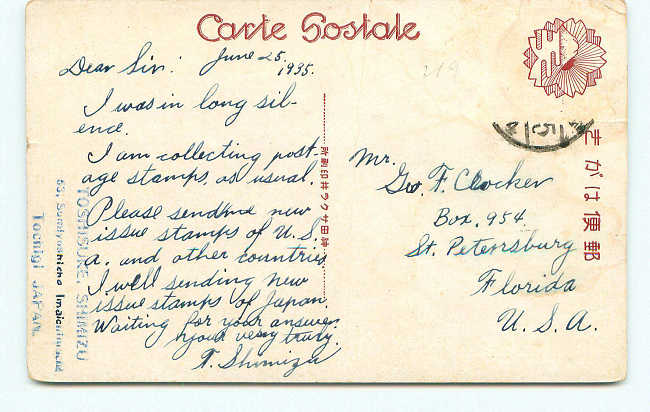 Carte Postale
Dear Sir: June 25,
1935.
I was in long sil-
ence.
I am collecting post-
age stamps, as usual.
Please send me new
issue stamps of U.S.
a. and other countries
I will sending new
issue stamps of Japan.
Waiting for your answer.
your very truly.
T. Shimizu
TOSHISUKE, SHIMIZU
63, Sumiyoshicho
Tochigi JAPAN.
219
Mr.
Geo. F. Clocker
Box. 954
St. Petersburg
Florida
U.S.A.
きがは便郵